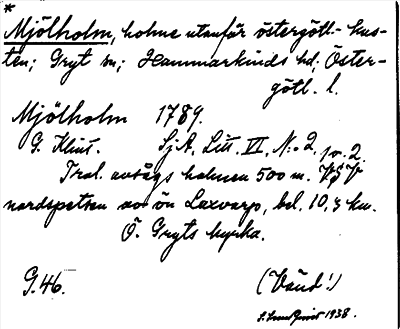 *
Mjölholm, holme utanför östergötl.- kus-
ten; Gryt sn; Hammarkinds hd; Öster-
götl. l.
Mjölholm 1789.
G. Klint. SjA. Litt. VI, N:o 2, nr. 2.
Trol. avsågs holmen 500 m. VSV
nordspetsen av ön Laxvarp, bel. 10,3 km.
Ö. Gryts kyrka.
G. 46. (Vänd!)
S. Lundquist 1938.